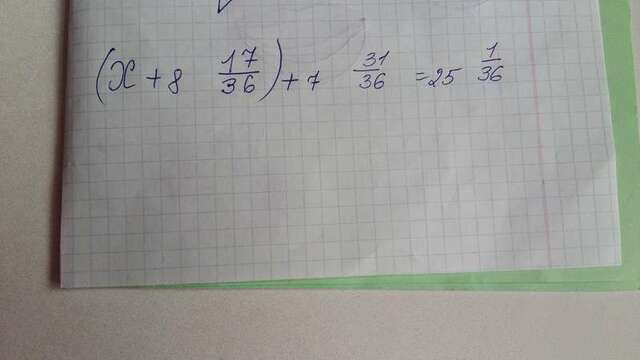 (x + 8 17/36) + 7 31/36 = 25 1/36